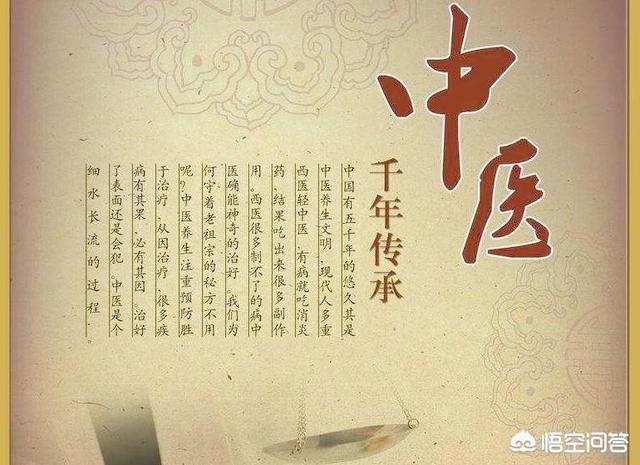 中医
千年传承
中国有五千年的悠久其是
中医养生文明,现代人多重
西医轻中医,有病就吃消炎
药,结果吃出来很多副作
用。西医很多制不了的病中
医确能神奇的治好。我们为
何守着老祖宗的秘方不用
呢?中医养生注重预防胜
于治疗,从因治疗,很多疾
病有其果,必有其因。治好
了表面还是会犯。中医是个
细水长流的过程。
悟空问答